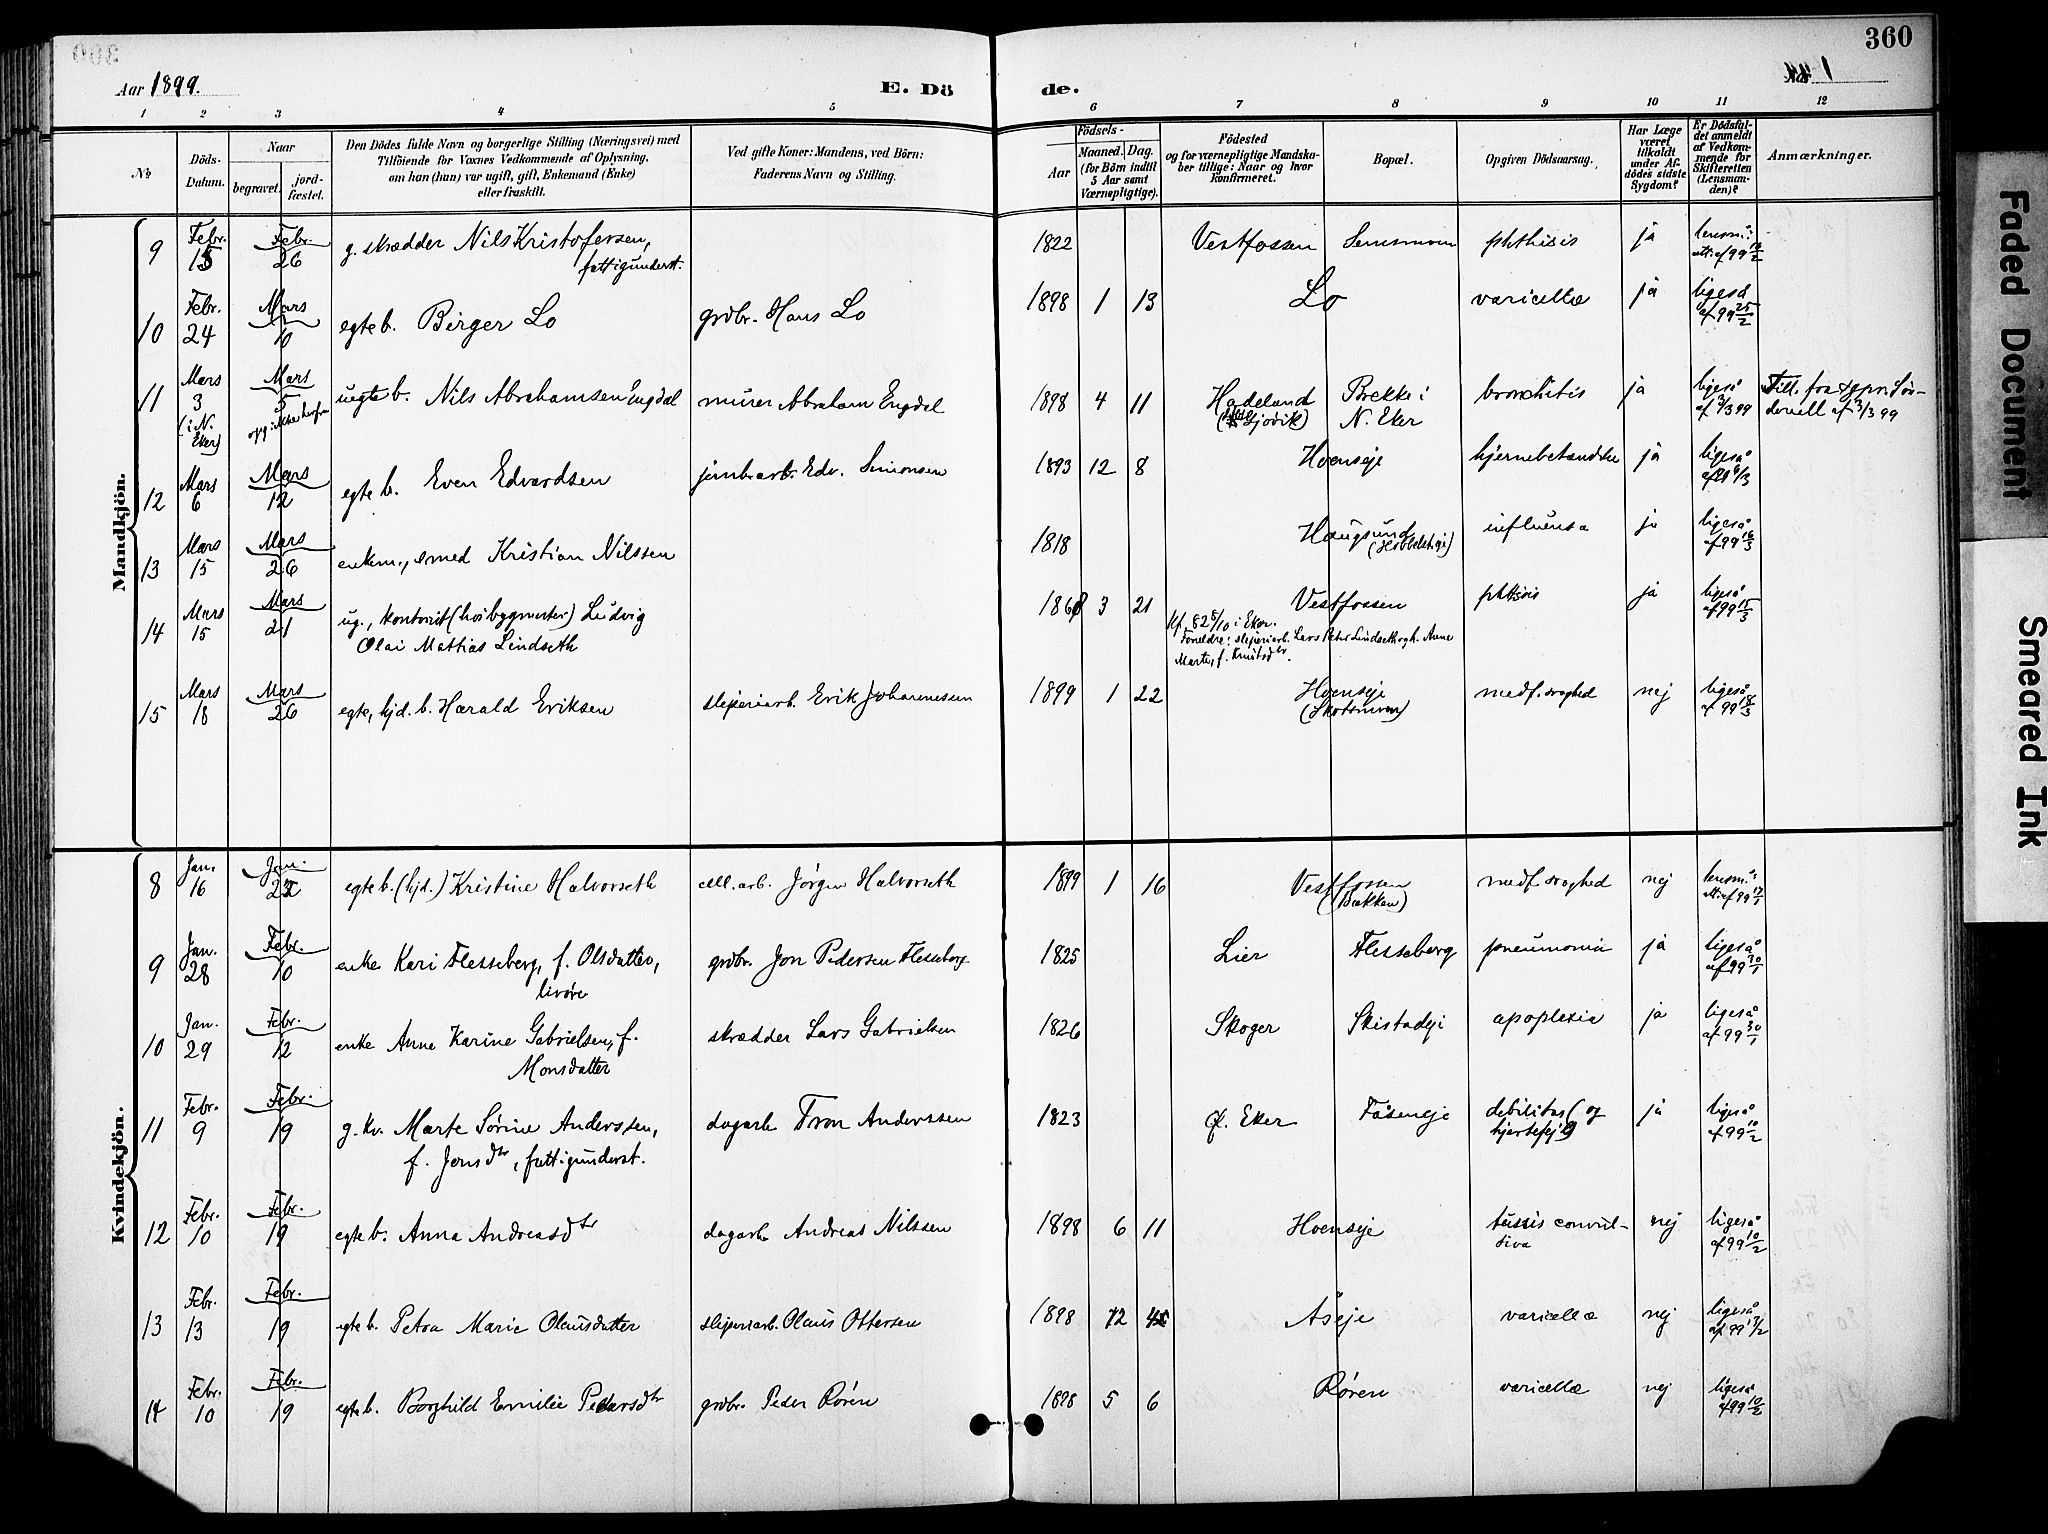 360
Aar 1899.
E. Dö de.
1
1 2 3 4 5 6 7 8 9 10 11 12
No
Döds-Datum.
Naar
begravet. jordfæstet.
Den Dödes fulde Navn og borgerlige Stilling (Næringsvei) med
Tilföiende for Voxnes Vedkommende af Oplysning,
om han (hun) var ugift, gift, Enkemand (Enke)
eller fraskilt.
Ved gifte Koner: Mandens, ved Börn:
Faderens Navn og Stilling.
Födsels-
Aar Maaned. Dag.
(for Börn indtil
5 Aar samt
Værnepligtige).
Födested
og for værnepligtige Mandska-
ber tillige: Naar og hvor
konfirmeret.
Bopæl.
Opgiven Dödsaarsag.
Har Læge
været
tilkaldt
under Af-
dödes sidste
Sygdom?
Er Dödsfal-
det anmeldt
af Vedkom-
mende for
Skifteretten
(Lensman-
den)?
Anmærkninger.
Mandkjön.
9 Febr. 15 Febr. 26 g. skrædder Nils Kristofersen, fattigunderst. 1822 Vestfossen phthisis ja lensm.
10 Febr. 24 Mars 10 egte b. Birger Lo grdbr. Hans Lo 1898 1 13 Lo varicellæ ja ligeså af 99 25/2
11 Mars 3 (i N. Eker) Mars 5 uegte b. Nils Abrahamsen Engdal murer Abraham Engdal 1898 4 11 Hadeland (Gjøvik) Brekke i N. Eker bronchitis ja ligeså af 3/3 99 Till. fra af 3/3 99
12 Mars 6 Mars 12 egte b. Even Edvardsen jernbarb. Edv. Simonsen 1893 12 8 Hoenseje hjernebetændelse ja ligeså
13 Mars 15 Mars 26 enkem., smed Kristian Nilssen 1818 Haugsund influensa ja ligeså af 99 16/3
14 Mars 15 Mars 21 ug., kontorist Ludvig
Olai Mathias Lindseth 3 21 Vestfossen phthisis ja ligeså af 99 15/3
Kf. 82 8/10 i Eker.
Foreldre: sliperiarb. Lars Peter Lindseth og h. Anne
Marte, f. Knutsdtr.
15 Mars 18 Mars 26 egte, hjd. b. Harald Eriksen sliperiarb. Erik Johannessen 1899 1 22 Hoenseje (Skotsmoen) medf. svaghed nej ligeså af 99 18/3
Kvindekjön.
8 Jan. 16 Jan. 22 egte b. (hjd.) Kristine Halvorseth cell. arb. Jörgen Halvorseth 1899 1 16 Vestfossen (Bakken) medf. svaghed nej lensm.
9 Jan. 28 Febr. 10 enke Kari Flesseberg, f. Olsdatter, livøre grdbr. Jon Pedersen Flesseberg 1825 Lier Flesseberg pneumonia ja ligeså af 99 30/1
10 Jan. 29 Febr. 12 enke Anne Karine Gabrielsen, f. Monsdatter skrædder Lars Gabrielsen 1826 Skoger Skistadeje apoplexia ja ligeså af 99 30/1
11 Febr. 9 Febr. 19 g. kv. Marte Sørine Anderssen, f. Jensdtr, fattigunderst. dagarb. Tron Anderssen 1823 Ø. Eker Fåseneje debilitas (og hjertefejl) ja ligeså af 99 10/2
12 Febr. 10 Febr. 19 egte b. Anna Andreasdtr dagarb. Andreas Nilssen 1898 6 11 Hoenseje tussis convul-
siva nej ligeså af 99 10/2
13 Febr. 13 Febr. 19 egte b. Petra Marie Olausdatter sliperiarb. Olaus Ottersen 1898 12 Åseje varicellæ nej ligeså af 99 13/2
14 Febr. 10 Febr. 19 egte b. Borghild Emilie Pedersdtr grdbr. Peder Røren 1898 5 6 Røren varicellæ nej ligeså af 99 10/2
Faded Document
Smeared Ink